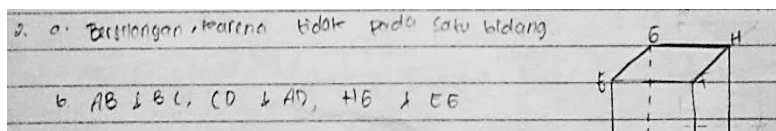 2. a. Bersilangan, karena tidak pada satu bidang
b AB & BC, CD & AD, HG & EG
G H
E F